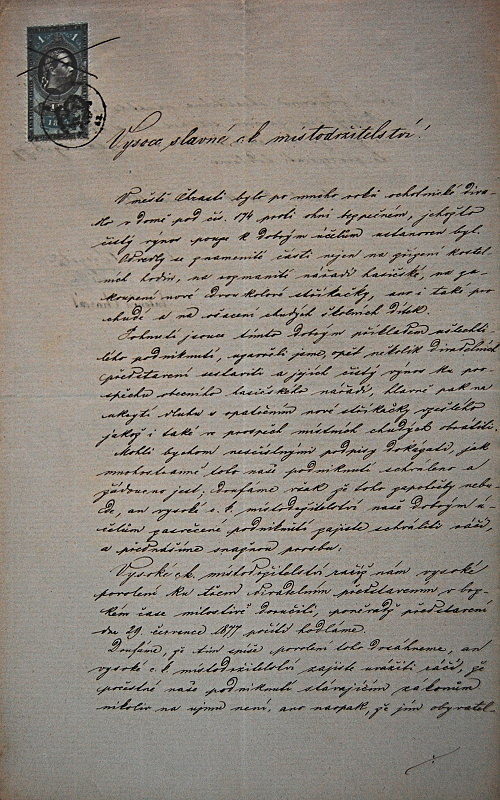 1
Vysoce slavné c. k. místodržitelství!
V městě Chrasti bylo po mnoho roků ochotnické diva-
dlo v domě pod čís. 174 proti ohni bezpečném, jehožto
čistý výnos pouze k dobrým účelům ustanoven byl.
Odvedly se znamenité části nejen na zřízení kostel-
ních hodin, na rozmanité nářadí hasičské, na za-
koupení nové dvoukolové stříkačky, ano i také pro
chudé a na ošacení chudých školních dítek.
Pohnuti jsouce tímto dobrým příkladem ušlechti-
lého podniknutí, uzavřeli jsme, opět několik divadelních
představení sestaviti a jejich čistý výnos ku pro-
spěchu obecního hasičského nářadí, hlavně pak na
ukrytí dluhu s opatřením nové stříkačky vzešlého
jakož i také ve prospěch místních chudých obrátiti.
Mohli bychom nesčíslnými podpisy dokázati, jak
mnohostranně toto naše podniknutí schváleno a
žádoucno jest; doufáme však že toho zapotřebí nebu-
de, an vysoké c. k. místodržitelství naše dobrým ú-
čelům zasvěcené podniknutí zajisté schváliti ráčí,
a přednášíme snažnou prosbu:
Vysoké c. k. místodržitelství račiž nám vysoké
povolení ku všem divadelním představením v brz-
kém čase milostivě doručiti, poněvadž představení
dne 29. července 1877 počíti hodláme.
Doufáme, že tím spíše povolení toho dosáhneme, an
vysoké c. k. místodržitelství zajisté uvážiti ráčí, že
počestné naše podniknutí stávajícím zákonům
nikoliv na ujmu není, ano naopak, že jím obyvatel-